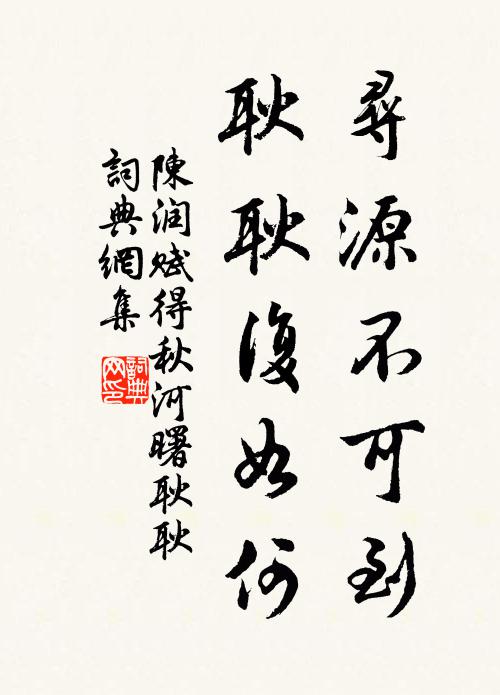 尋源不可到
耿耿復如何
陳润赋得秋河曙耿耿
詞典網集
詞典
网印